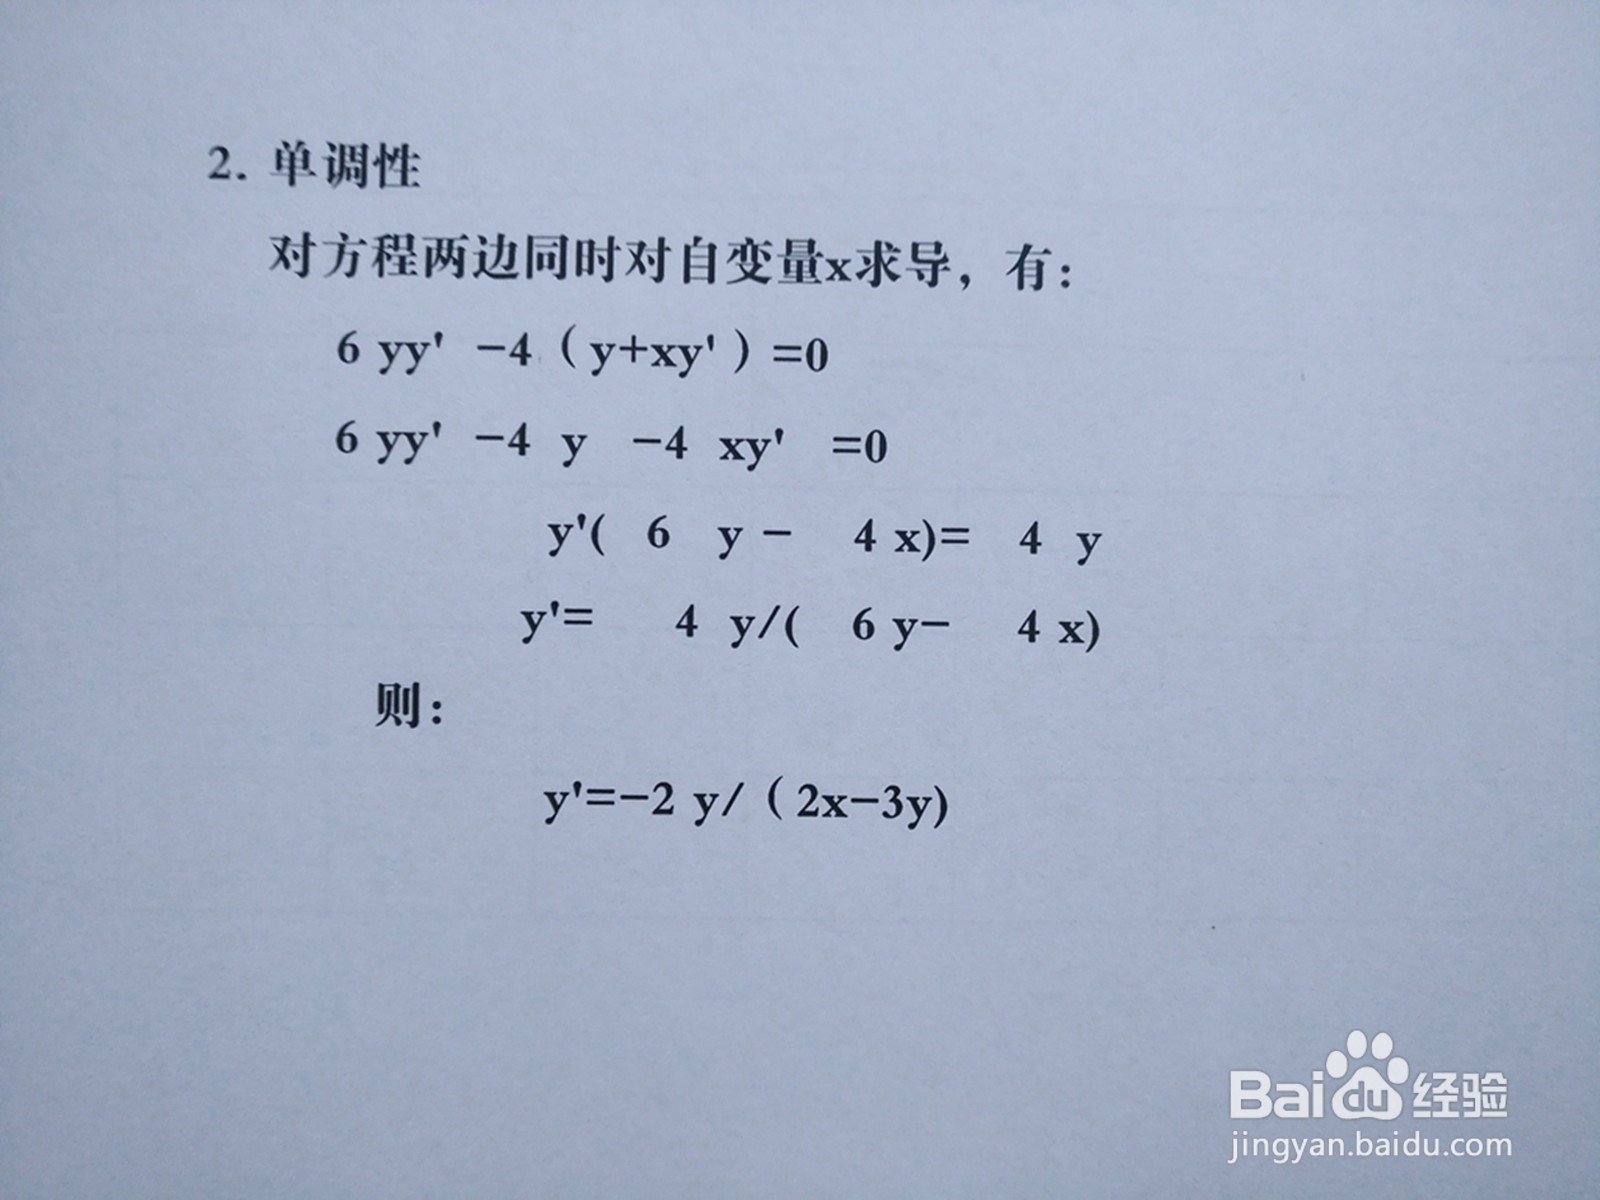 2. 单调性
对方程两边同时对自变量x求导，有：
6 yy' -4（y+xy'）=0
6 yy' -4 y -4 xy' =0
y'( 6 y - 4 x)= 4 y
y'= 4 y/( 6 y- 4 x)
则：
y'=-2 y/（2x-3y)
Bai du 经验
jingyan.baidu.com